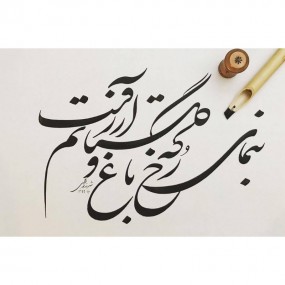 بنمای رخ که باغ و گلستانم آرزوست